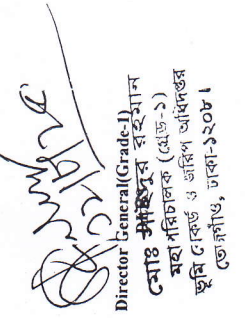 Director General(Grade-1)
মোঃ রহমান
মহাপরিচালক (গ্রেড-১)
ভূমি রেকর্ড ও জরিপ অধিদপ্তর
তেজগাঁও, ঢাকা-১২০৮।